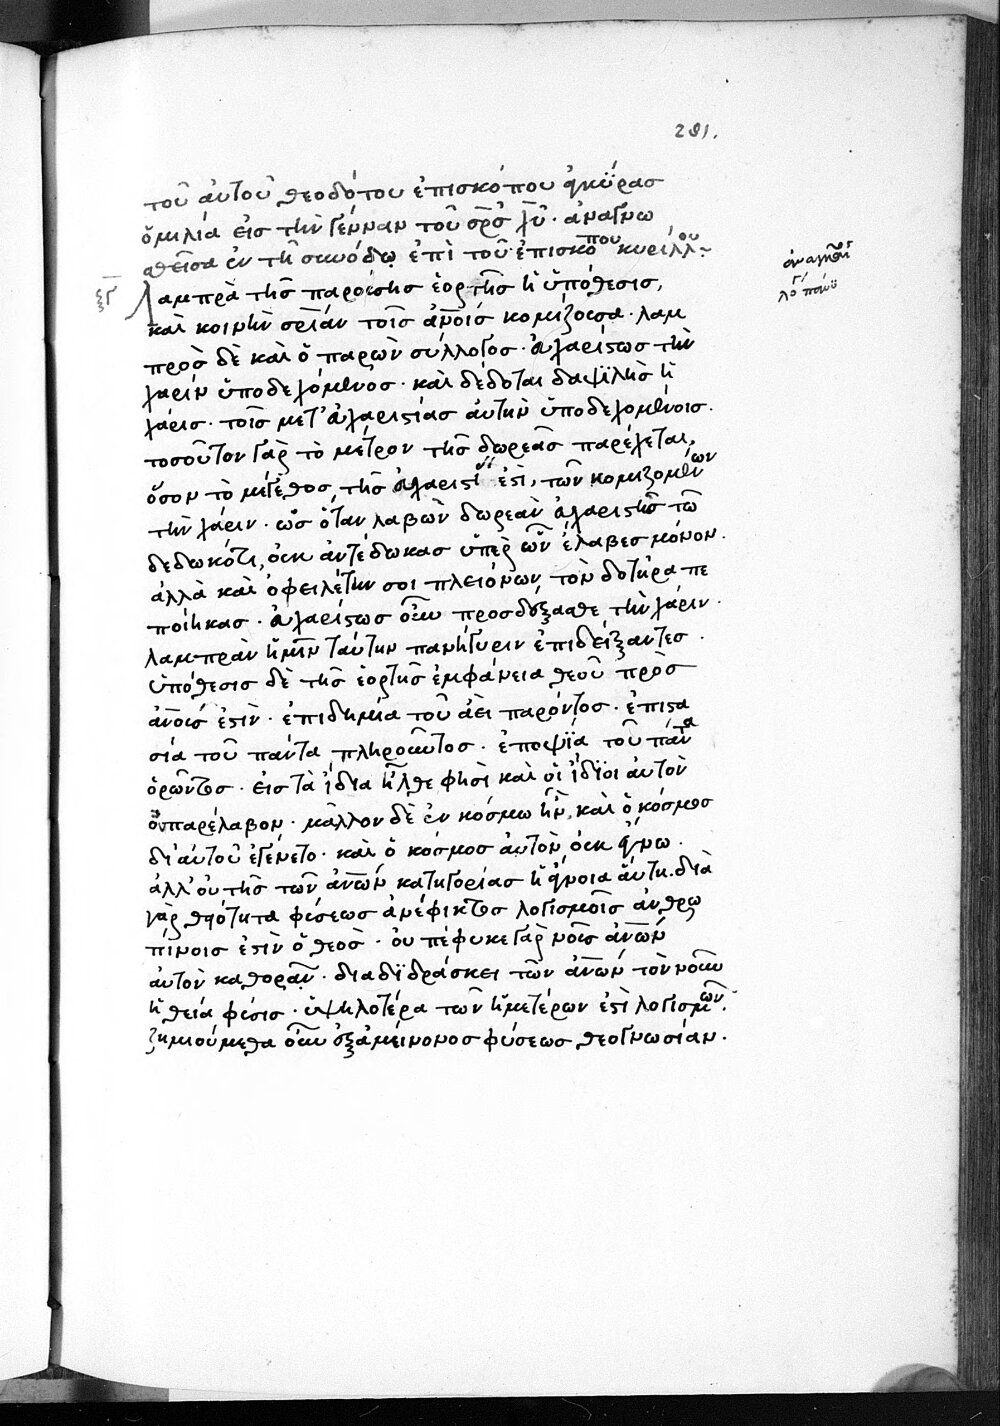 281.
τοῦ αὐτοῦ θεοδότου ἐπισκόπου ἀγκύρας
ὁμιλία εἰς τὴν γένναν τοῦ σρς χυ· ἀναγνω
σθεῖσα ἐν τῇ συνόδῳ ἐπὶ τοῦ ἐπισκόπου κυρίλλου:
ξγ Λαμπρὰ τῆς παρούσης ἑορτῆς ἡ ὑπόθεσις,
καὶ κοινὴν σρίαν τοῖς ἀνοις κομίζουσα· λαμ
πρὸς δὲ καὶ ὁ παρὼν σύλλογος· εὐχαρίστως τὴν
χάριν ὑποδεχόμενος· καὶ δέδοται δαψιλὴς ἡ
χάρις· τοῖς μετ' εὐχαριστίας αὐτὴν ὑποδεχομένοις·
τοσοῦτον γὰρ τὸ μέτρον τῆς δωρεᾶς παρέχεται,
ὅσον τὸ μέγεθος τῆς ἐστι, τῶν κομιζομένων
τὴν χάριν· ὡς ὅταν λαβὼν δωρεὰν εὐχαριστῇς τῷ
δεδωκότι, οὐκ ἀντέδωκας ὑπὲρ ὧν ἔλαβες μόνον·
ἀλλὰ καὶ ὀφειλέτην σοι πλειόνων τὸν δοτῆρα πε
ποίηκας· εὐχαρίστως οὖν προσδεξασθε τὴν χάριν·
λαμπρὰν ἡμῖν ταύτην πανήγυριν ἐπιδείξαντες·
ὑπόθεσις δὲ τῆς ἑορτῆς ἐμφάνεια θεοῦ πρὸς
ἀνοις ἐστὶν· ἐπιδημία τοῦ ἀεὶ παρόντος· ἐπιστα
σία τοῦ πάντα πληροῦντος· ἐποψία τοῦ πάντα
ὁρῶντος· εἰς τὰ ἴδια ἦλθε φησὶ καὶ οἱ ἴδιοι αὐτὸν
οὐ παρέλαβον· μᾶλλον δὲ ἐν κόσμω ἦν, καὶ ὁ κόσμος
δι' αὐτοῦ ἐγένετο· καὶ ὁ κόσμος αὐτὸν οὐκ ἔγνω·
ἀλλ' οὐ τῆς τῶν ἀνων κατηγορίας ἡ ἔννοια αὕτη. διὰ
γὰρ θεότητα φύσεως ἀνέφικτος λογισμοῖς ἀνθρω
πίνοις ἐστὶν ὁ θεὸς· οὐ πέφυκε γὰρ νοῦς ἀνων
αὐτὸν καθορᾶν· διαδιδράσκει τῶν ἀνων τὸν νοῦν
ἡ θεία φύσις· ὑψηλοτέρα τῶν ἡμετέρων ἐστὶ λογισμῶν·
ζημιούμεθα οὖν ἐξ ἀμείνονος φύσεως θεογνωσίαν·